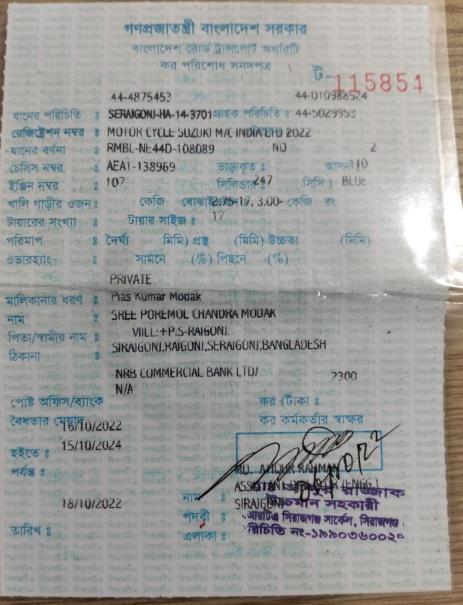 গণপ্রজাতন্ত্রী বাংলাদেশ সরকার
বাংলাদেশ রোড ট্রান্সপোর্ট অথরিটি
কর পরিশোধ সনদপত্র
ট- 115854
44-4875453 44-010988524
যানের পরিচিতি : SERAIGONJ-HA-14-3701 গ্রাহক পরিচিতি : 44-5029953
রেজিষ্ট্রেশন নম্বর : MOTOR CYCLE SUZUKI M/C INDIA LTD 2022
যানের বর্ণনা : RMBL-NE44D-108089 NO 2
চেসিস নম্বর : AEA1-138969 ভাড়াকৃত : আসন 110
ইঞ্জিন নম্বর : 107 সিলিন্ডার 247 সিসি : BLUE
খালি গাড়ীর ওজন : কেজি বোঝাই 2.75-17, 3.00- কেজি রং
টায়ারের সংখ্যা : টায়ার সাইজ : 17
পরিমাপ : দৈর্ঘ্য (মিমি) প্রস্থ (মিমি) উচ্চতা (মিমি)
ওভারহ্যাং : সামনে (%) পিছনে (%)
PRIVATE
মালিকানার ধরণ : Pias Kumar Modak
নাম : SREE POREMOL CHANDRA MODAK
পিতা/স্বামীর নাম : VIILL:+P.S-RAIGONJ.
ঠিকানা : SIRAIGONJ,RAIGONJ,SERAIGONJ,BANGLADESH
NRB COMMERCIAL BANK LTD/ 2300
N/A
পোষ্ট অফিস/ব্যাংক কর (টাকা :
বৈধতার মেয়াদ 16/10/2022 কর কর্মকর্তার স্বাক্ষর
হইতে : 15/10/2024
পর্যন্ত :
MD. RAHMAN
ASSISTANT (ENGG.)
18/10/2022 নাম : SIRAJGONJ
রাজ্জাক
পদবী : উচ্চমান সহকারী
তারিখ : এলাকা : বিআরটিএ সিরাজগঞ্জ সার্কেল, সিরাজগঞ্জ
পরিচিতি নং-১৯৯০৩৬০০২০